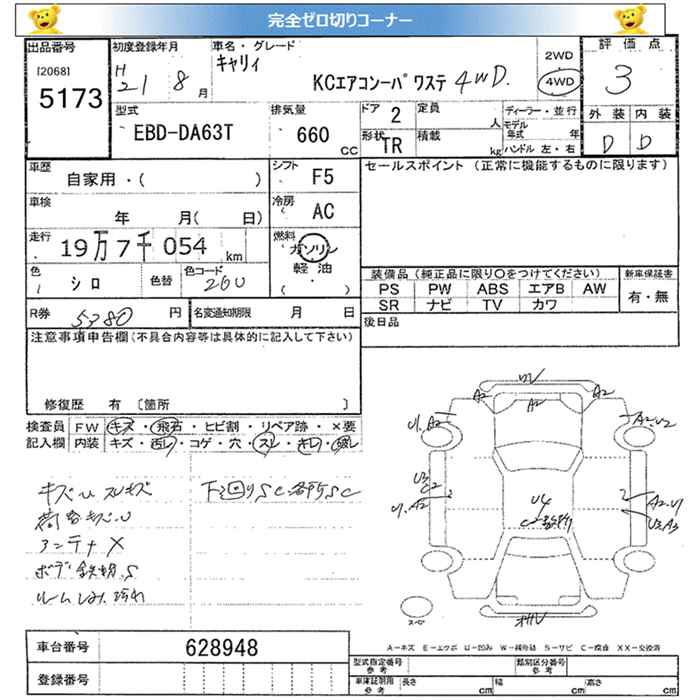 完全ゼロ切りコーナー
出品番号
[2068]
5173
初度登録年月
H 21 8 月
車名・グレード
キャリィ
KCエアコンーパワステ 4WD.
2WD
4WD
評価点
3
外装 内装
D D
型式
EBD-DA63T
排気量
660 CC
ドア 2
定員 人
形状 TR
積載 kg
ディーラー・並行
モデル年式 年
ハンドル 左・右
車歴
自家用・( )
シフト F5
セールスポイント (正常に機能するものに限ります)
車検
年 月( 日)
冷房 AC
走行
19万7千054 km
燃料
ガソリン
軽油
( ・ )
色
シロ
色替
色コード
26U
装備品(純正品に限り○をつけてください)
PS PW ABS エアB AW
SR ナビ TV カワ
新車保証書
有・無
R券 5380 円
名変通知期限 月 日
後日品
注意事項申告欄(不具合内容等は具体的に記入して下さい)
修復歴 有 〔箇所 〕
検査員記入欄
FW キズ・飛石・ヒビ割・リペア跡・×要
内装 キズ・汚レ・コゲ・穴・スレ・キレ・破レ
キズu スレキズ
荷台キズ.u
アンテナX
ボデー鉄切.S
ルームしみ.汚れ
下回りSC 各所SC
UV
A2
A2
A2
U1.A2
A2.U2
U3
C2
U1.A2
U4
A2.U1
U3.A3
スペア
A-キズ E-エクボ U-凹ミ W-補修跡 S-サビ C-腐食 XX-交換済
車台番号 628948
登録番号
型式指定番号 参考
類別区分番号 参考
車庫証明用 参考
長さ cm
幅 cm
高さ cm